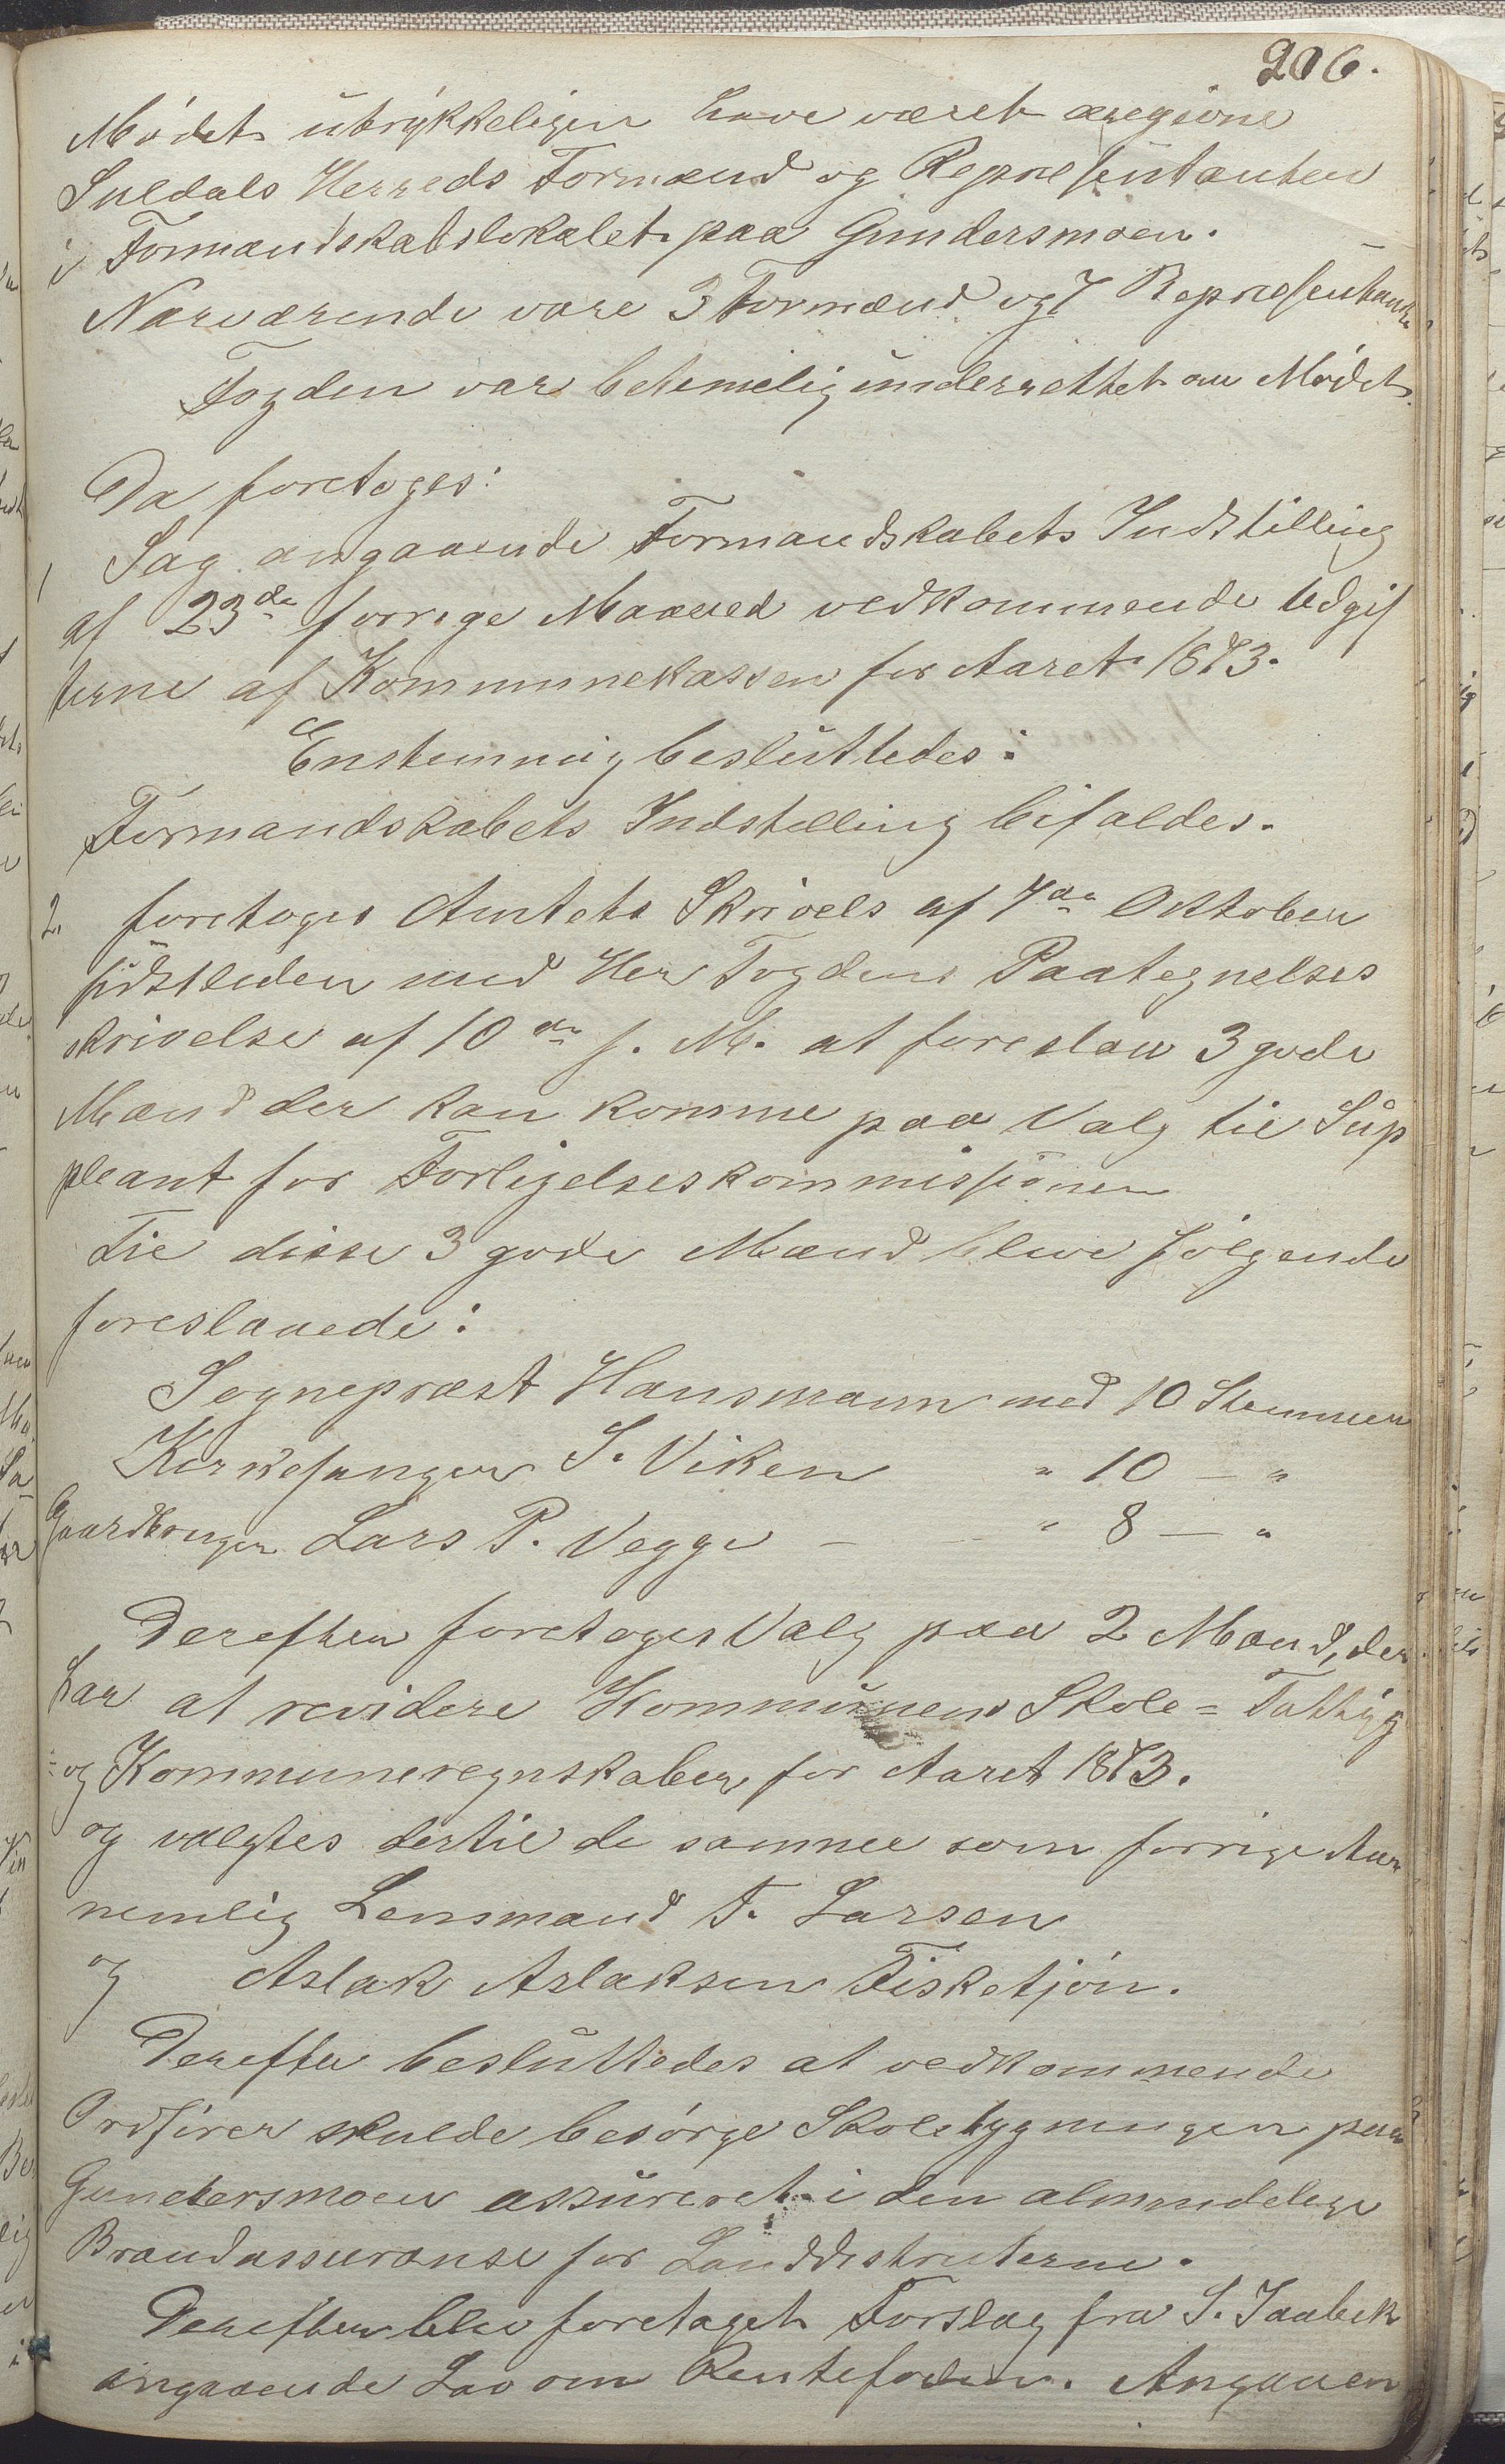 206.
Mödet udtrykkeligen have været
Suledals Herreds Formænd og Repræsentanter
i Formandskabslokalet paa Gundersmoen.
Nærværende vare 3 Formænd og 7 Repræsentanter
Fogden var betimelig underrettet om Mödet.
Da foretoges:
1 Sag angaaende Formandskabets Indstilling
af 23de forrige Maaned vedkommende Udgif
terne af Kommunekassen for Aaret 1873.
Enstemmig besluttedes:
Formandskabets Indstilling bifaldes.
2. foretoges Amtets Skrivels af 7de Oktober
sidstleden med Her Fogdens Paategnelses
skrivelse af 10de s. M. at foreslaa 3 gode
Mænd der kan komme paa Valg til Sup
pleant for Forligelseskommissionen
Til disse 3 gode Mænd bleve følgende
foreslaaede:
Sogneprest Hansmann med 10 Stemmer
Kirkesanger S. Viken " 10 — "
Gaardbruger Lars P. Vegge — " 8 — "
Derefter foretoges Valg paa 2 Mænd, der
har at revidere Kommunens Skole= Fattig
= og Kommuneregnskaber for Aaret 1873.
og valgtes dertil de samme som forrige Aar
nemlig Lensmand T. Larsen
og Aslak Aslaksen Fisketjön.
Derefter besluttedes at vedkommende
Ordförer skulde besörge Skolebygningen paa
Gundersmoen assureret i den almindelige
Brandassuranse for Landdistrikterne.
Derefter blev foretaget Forslag fra S. Jaabek
angaaende Lov om Rentefoden. Angaaen